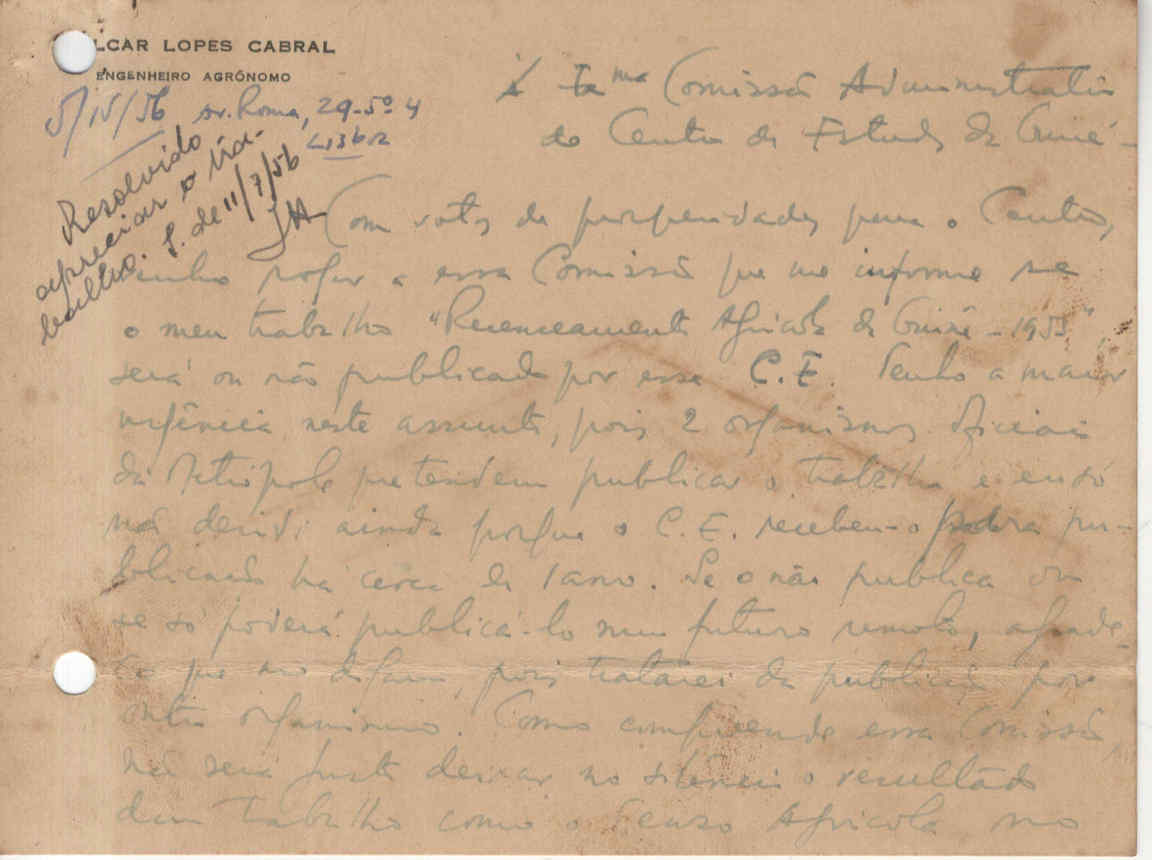 LCAR LOPES CABRAL
ENGENHEIRO AGRÓNOMO
5/IV/56 Av. Roma, 29-5º 4
Lisboa
Resolvido
apreciar o tra-
balho. S. de 11/7/56
À Exma Comissão Administrativa
do Centro de Estudos da Guiné
Com votos de prosperidades para o Centro,
venho rogar a essa Comissão que me informe se
o meu trabalho "Recenseamento Agrícola da Guiné - 1953",
será ou não publicado por esse C.E. Tenho a maior
urgência neste assunto, pois 2 organismos oficiais
da Metrópole pretendem publicar o trabalho e eu só
não decidi ainda porque o C.E. recebeu-o para pu-
blicação há cerca de 1 ano. Se o não publica ou
se só poderá publicá-lo num futuro remoto, agrade-
ço que mo digam, pois tratarei da publicação por
outro organismo. Como compreende essa Comissão,
não será justo deixar no silêncio o resultado
dum trabalho como o Censo Agrícola no